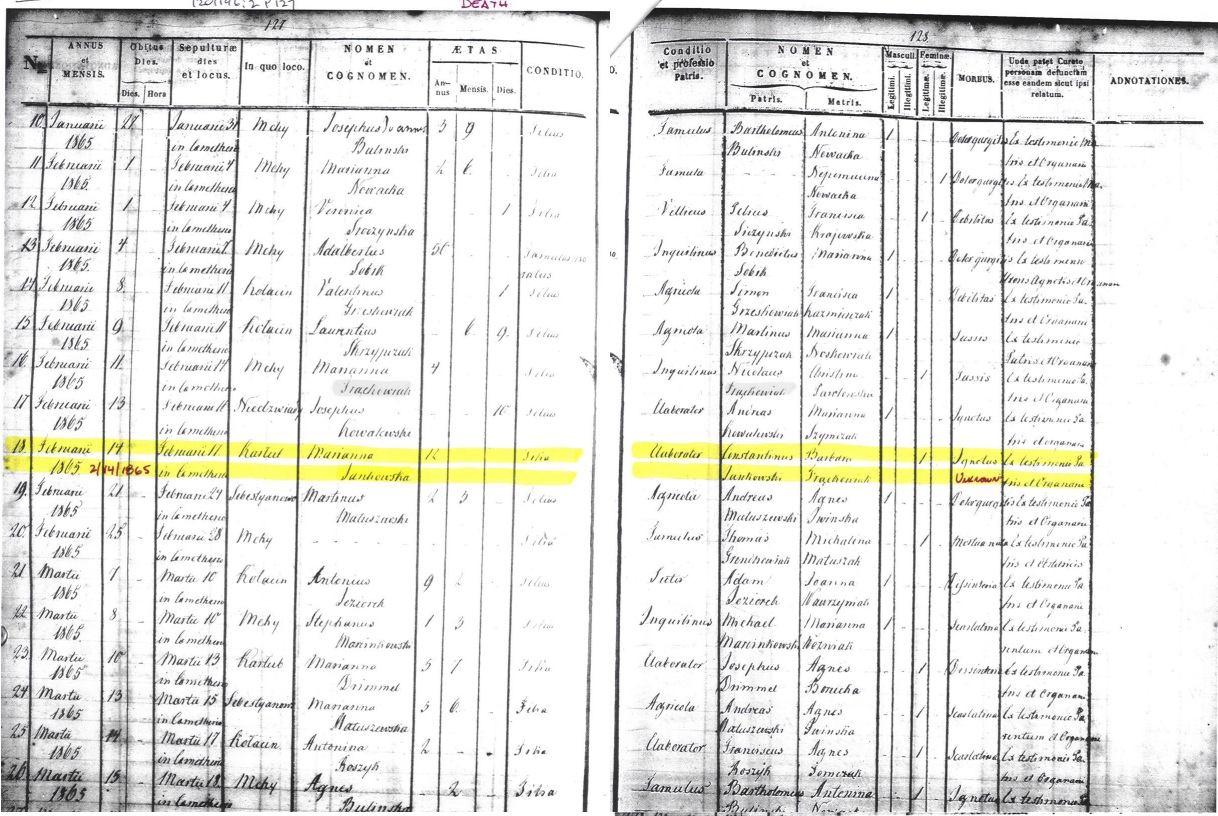 DEATH
127
N.
ANNUS et MENSIS.
Obitus Dies.
Dies. Hora
Sepulturæ dies et locus.
In quo loco.
NOMEN et COGNOMEN.
ÆTAS
Annus Mensis. Dies.
CONDITIO.
10. Januarii 27 Januarii 31 Mchy Josephus Joannes 3 9 Filius
1865 in Cœmetherio Bulinski
11. Februarii 1 Februarii 4 Mchy Marianna 2 6 Filia
1865. in Cœmetherio Nowacka
12. Februarii 1 Februarii 4 Mchy Veronica 1 Filia
1865 in Cœmetherio
13 Februarii 4 Februarii 7 Mchy Adalbertus 50
1865. in Cœmetherio Sobik
14 Februarii 8 Februarii 11 Kolacin Valentinus 1 Filius
1865 in Cœmetherio Grzeskowiak
15 Februarii 9 Februarii 11 Kolacin Laurentius 6 9 Filius
1865 in Cœmetherio Skrzypczak
16. Februarii 11 Februarii 14 Mchy Marianna 4 Filia
1865 in Cœmetherio Frackowiak
17 Februarii 13 Februarii Josephus 10 Filius
1865 in Cœmetherio Kowalewski
18. Februarii 14 Februarii 17 Marianna 12 Filia
1865 2/14/1865 in Cœmetherio Jankowska
19. Februarii 21 Februarii 24 Martinus 2 3 Filius
1865 in Cœmetherio Matuszewski
20. Februarii 25 Februarii 28 Mchy Filia
1865 in Cœmetherio
21 Martii 7 Martii 10 Kolacin Antonius 9 Filius
1865 in Cœmetherio Jeziorek
22 Martii 8 Martii 10 Mchy Stephanus 1 3 Filius
1865. in Cœmetherio Marcinkowski
23. Martii 10 Martii 13 Marianna 5 7 Filia
1865. in Cœmetherio Drimmel
24 Martii 13 Martii 15 Marianna 3 6 Filia
1865 in Cœmetherio Matuszewska
25 Martii 14 Martii 17 Kolacin Antonina 2 Filia
1865 in Cœmetherio Koszyk
26 Martii 15 Martii 18 Mchy Agnes 2 Filia
1865 in Cœmetherio Bulinska
128
Conditio et professio Patris.
NOMEN et COGNOMEN.
Patris. Matris.
Masculi. Feminæ.
Legitimi. Illegitimi. Legitimæ. Illegitimæ.
MORBUS.
Unde patet Curato personam defunctam esse eandem sicut ipsi relatum.
ADNOTATIONES.
Famulus Bartholomeus Antonina 1 Ex testimonio Ma
Bulinski Nowacka tris et Organarii
Famula Nepomucena 1 Ex testimonio Ma
Nowacka tris et Organarii
Villicus Petrus Francisca 1 Debilitas Ex testimonio Pa
Krajewska tris et Organarii
Inquilinus Benedictus Marianna 1 Ex testimonio
Sobik Uxoris Agnetis et Organarii
Agricola Simon Francisca 1 Debilitas Ex testimonio Pa
Grzeskowiak Kazmirczak tris et Organarii
Agricola Martinus Marianna 1 Tussis Ex testimonio
Skrzypczak Noskowiak Patris et Organarii
Inquilinus Nicolaus Christina 1 Tussis Ex testimonio Pa
Frackowiak Pawlowska tris et Organarii
Elaborator Marianna 1 Ignotus Ex testimonio Pa
Kowalewski Szymczak tris et Organarii
Elaborator Constantinus Barbara 1 Ignotus Ex testimonio Pa
Jankowski Frackowiak Unknown tris et Organarii
Agricola Andreas Agnes 1 Ex testimonio Pa
Matuszewski Swinska tris et Organarii
Famulus Thomas Michalina 1 Ex testimonio Pa
Matuszak tris et
Sutor Adam Joanna 1 Ex testimonio Pa
Jeziorek Wawrzyniak tris et Organarii
Inquilinus Michael Marianna 1 Scarlatina Ex testimonio Pa
Marcinkowski Wozniak rentum et Organarii
Elaborator Josephus Agnes 1 Ex testimonio Pa
Drimmel Borucka tris et Organarii
Agricola Andreas Agnes 1 Scarlatina Ex testimonio Pa
Matuszewski Swinska rentum et Organarii
Elaborator Franciscus Agnes 1 Scarlatina Ex testimonio Pa
Koszyk Tomczak tris et Organarii
Famulus Bartholomeus Antonina 1 Ignotus Ex testimonio Pa
Bulinski